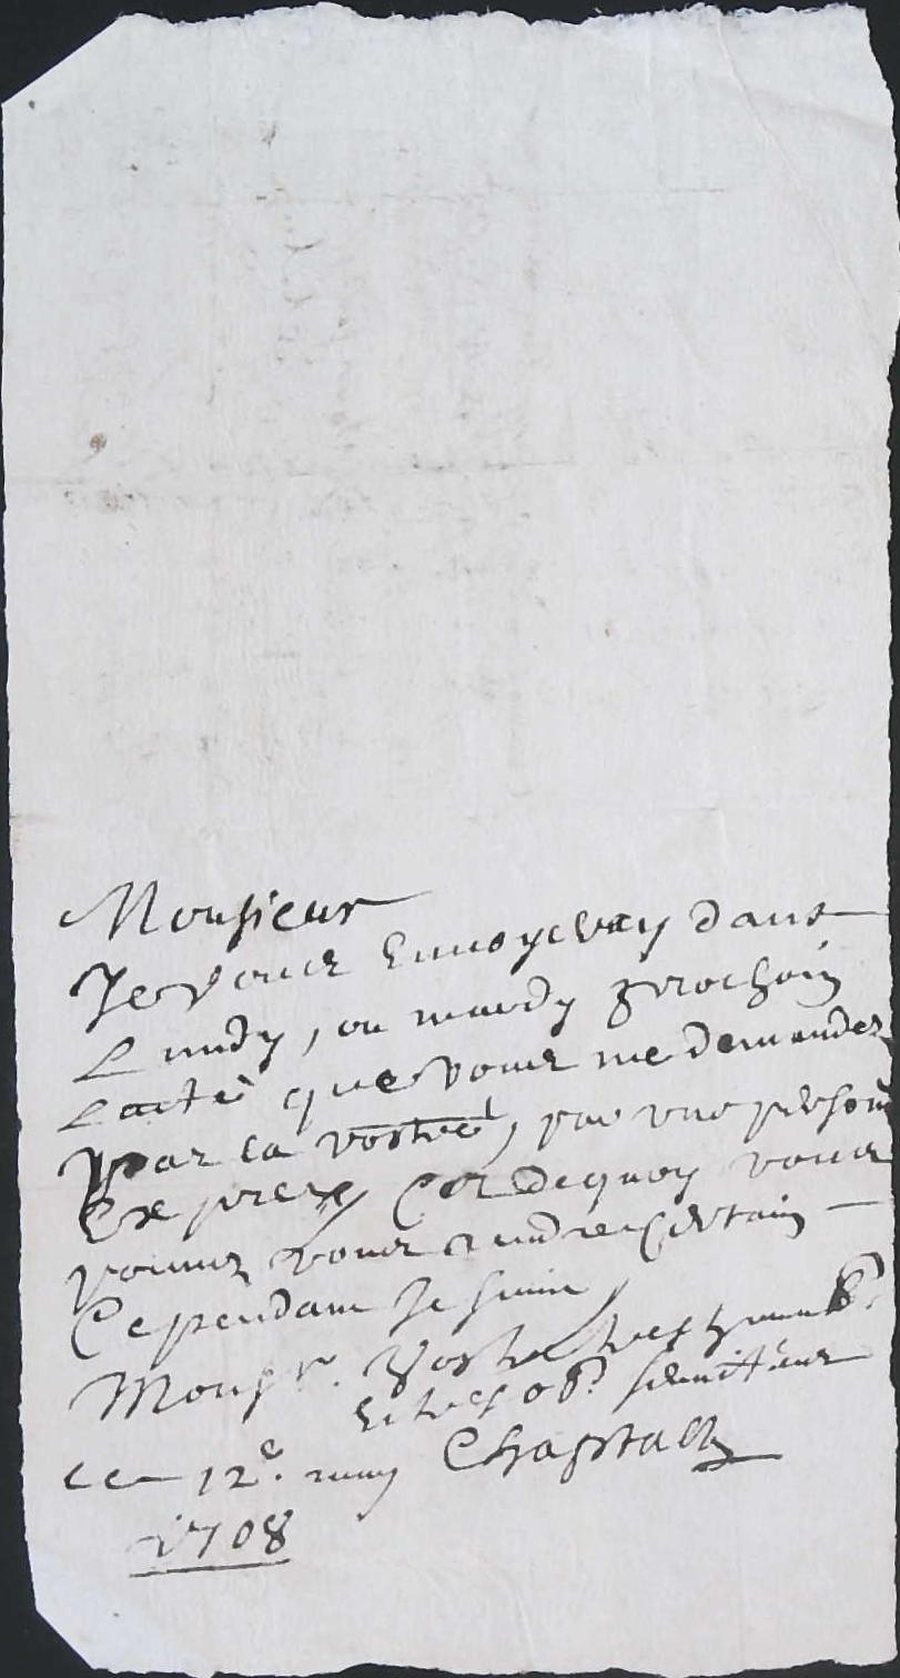 Monsieur
Je vous Envoyeray dans
Lundy, ou mardy prochain
Lacte que vous me demandez
par la vostre, par une persone
Expreze, Cez dequoy vous
pouvez vous rendre Certain
Cependant Je suis
Monsr. Vostre tres humb.
Et tres ob. serviteur
ce 12e. may Chapstal
1708